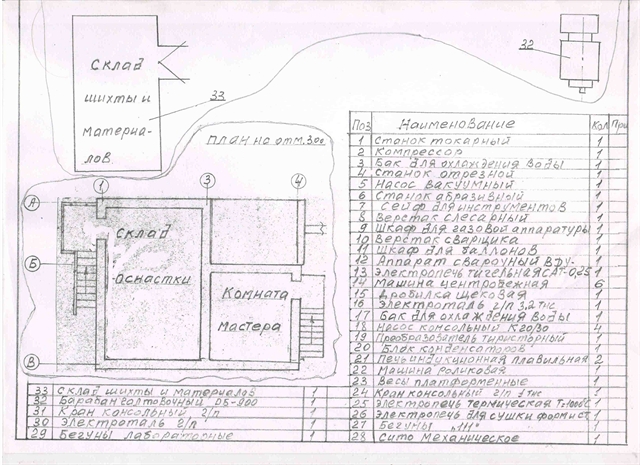 Склад
шихты и
материа-
лов.
33
32
План на отм. 3.00
1
3
4
А
Б
В
Склад
оснастки
Комната
мастера
Поз Наименование Кол При
1 Станок токарный 1
2 Компрессор 1
3 Бак для охлаждения воды 1
4 Станок отрезной 1
5 Насос вакуумный 1
6 Станок абразивный 1
7 Сейф для инструментов 1
8 Верстак слесарный 1
9 Шкаф для газовой аппаратуры 1
10 Верстак сварщика 1
11 Шкаф для баллонов 1
12 Аппарат сварочный ВДУ- 1
13 Электропечь тигельная САТ-0,25 1
14 Машина центробежная 6
15 Дробилка щековая 1
16 Электроталь г/п 3,2 тнс 1
17 Бак для охлаждения воды 1
18 Насос консольный К20/30 4
19 Преобразователь тиристорный 1
20 Блок конденсаторов 1
21 Печь индукционная плавильная 2
22 Машина роликовая 1
23 Весы платформенные 1
24 Кран консольный г/п 1 тнс 1
25 Электропечь термическая Т=1000С 1
26 Электропечь для сушки форм и ст. 1
27 Бегуны "111" 1
28 Сито механическое 1
33 Склад шихты и материалов 1
32 Барабан галтовочный ОБ-900 1
31 Кран консольный г/п 1
30 Электроталь г/п 1
29 Бегуны лабораторные 1